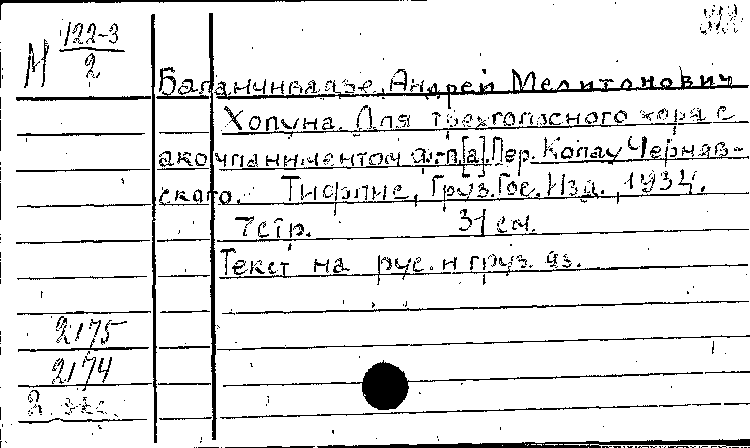 М 122-3
2
Баланчивадзе, Андрей Мелитонович
Хопуна. Для трехголосного хора с
акомпаниментом ф-п[а]. Пер. Колау Черняв-
ского. Тифлис, Груз. Гос. Изд., 1934.
7 стр. 31 см.
Текст на рус. и груз. яз.
2175
2174
2 экз.